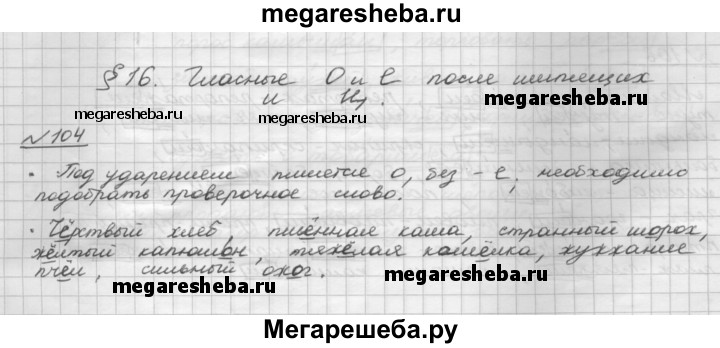 megaresheba.ru
§ 16. Гласные О и Е после шипящих
и Ц.
megaresheba.ru
megaresheba.ru
megaresheba.ru
№ 104
• Под ударением пишется о, без – е, необходимо
подобрать проверочное слово.
• Чёрствый хлеб, пшённая каша, странный шорох,
жёлтый капюшон, тяжёлая кошёлка, жужжание
пчёл, сильный ожог.
megaresheba.ru
megaresheba.ru
Мегарешеба.ру